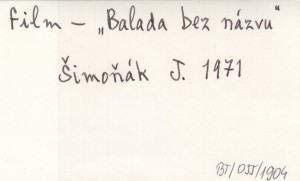 film – „Balada bez názvu"
Šimoňák J. 1971
BT/OJJ/1904